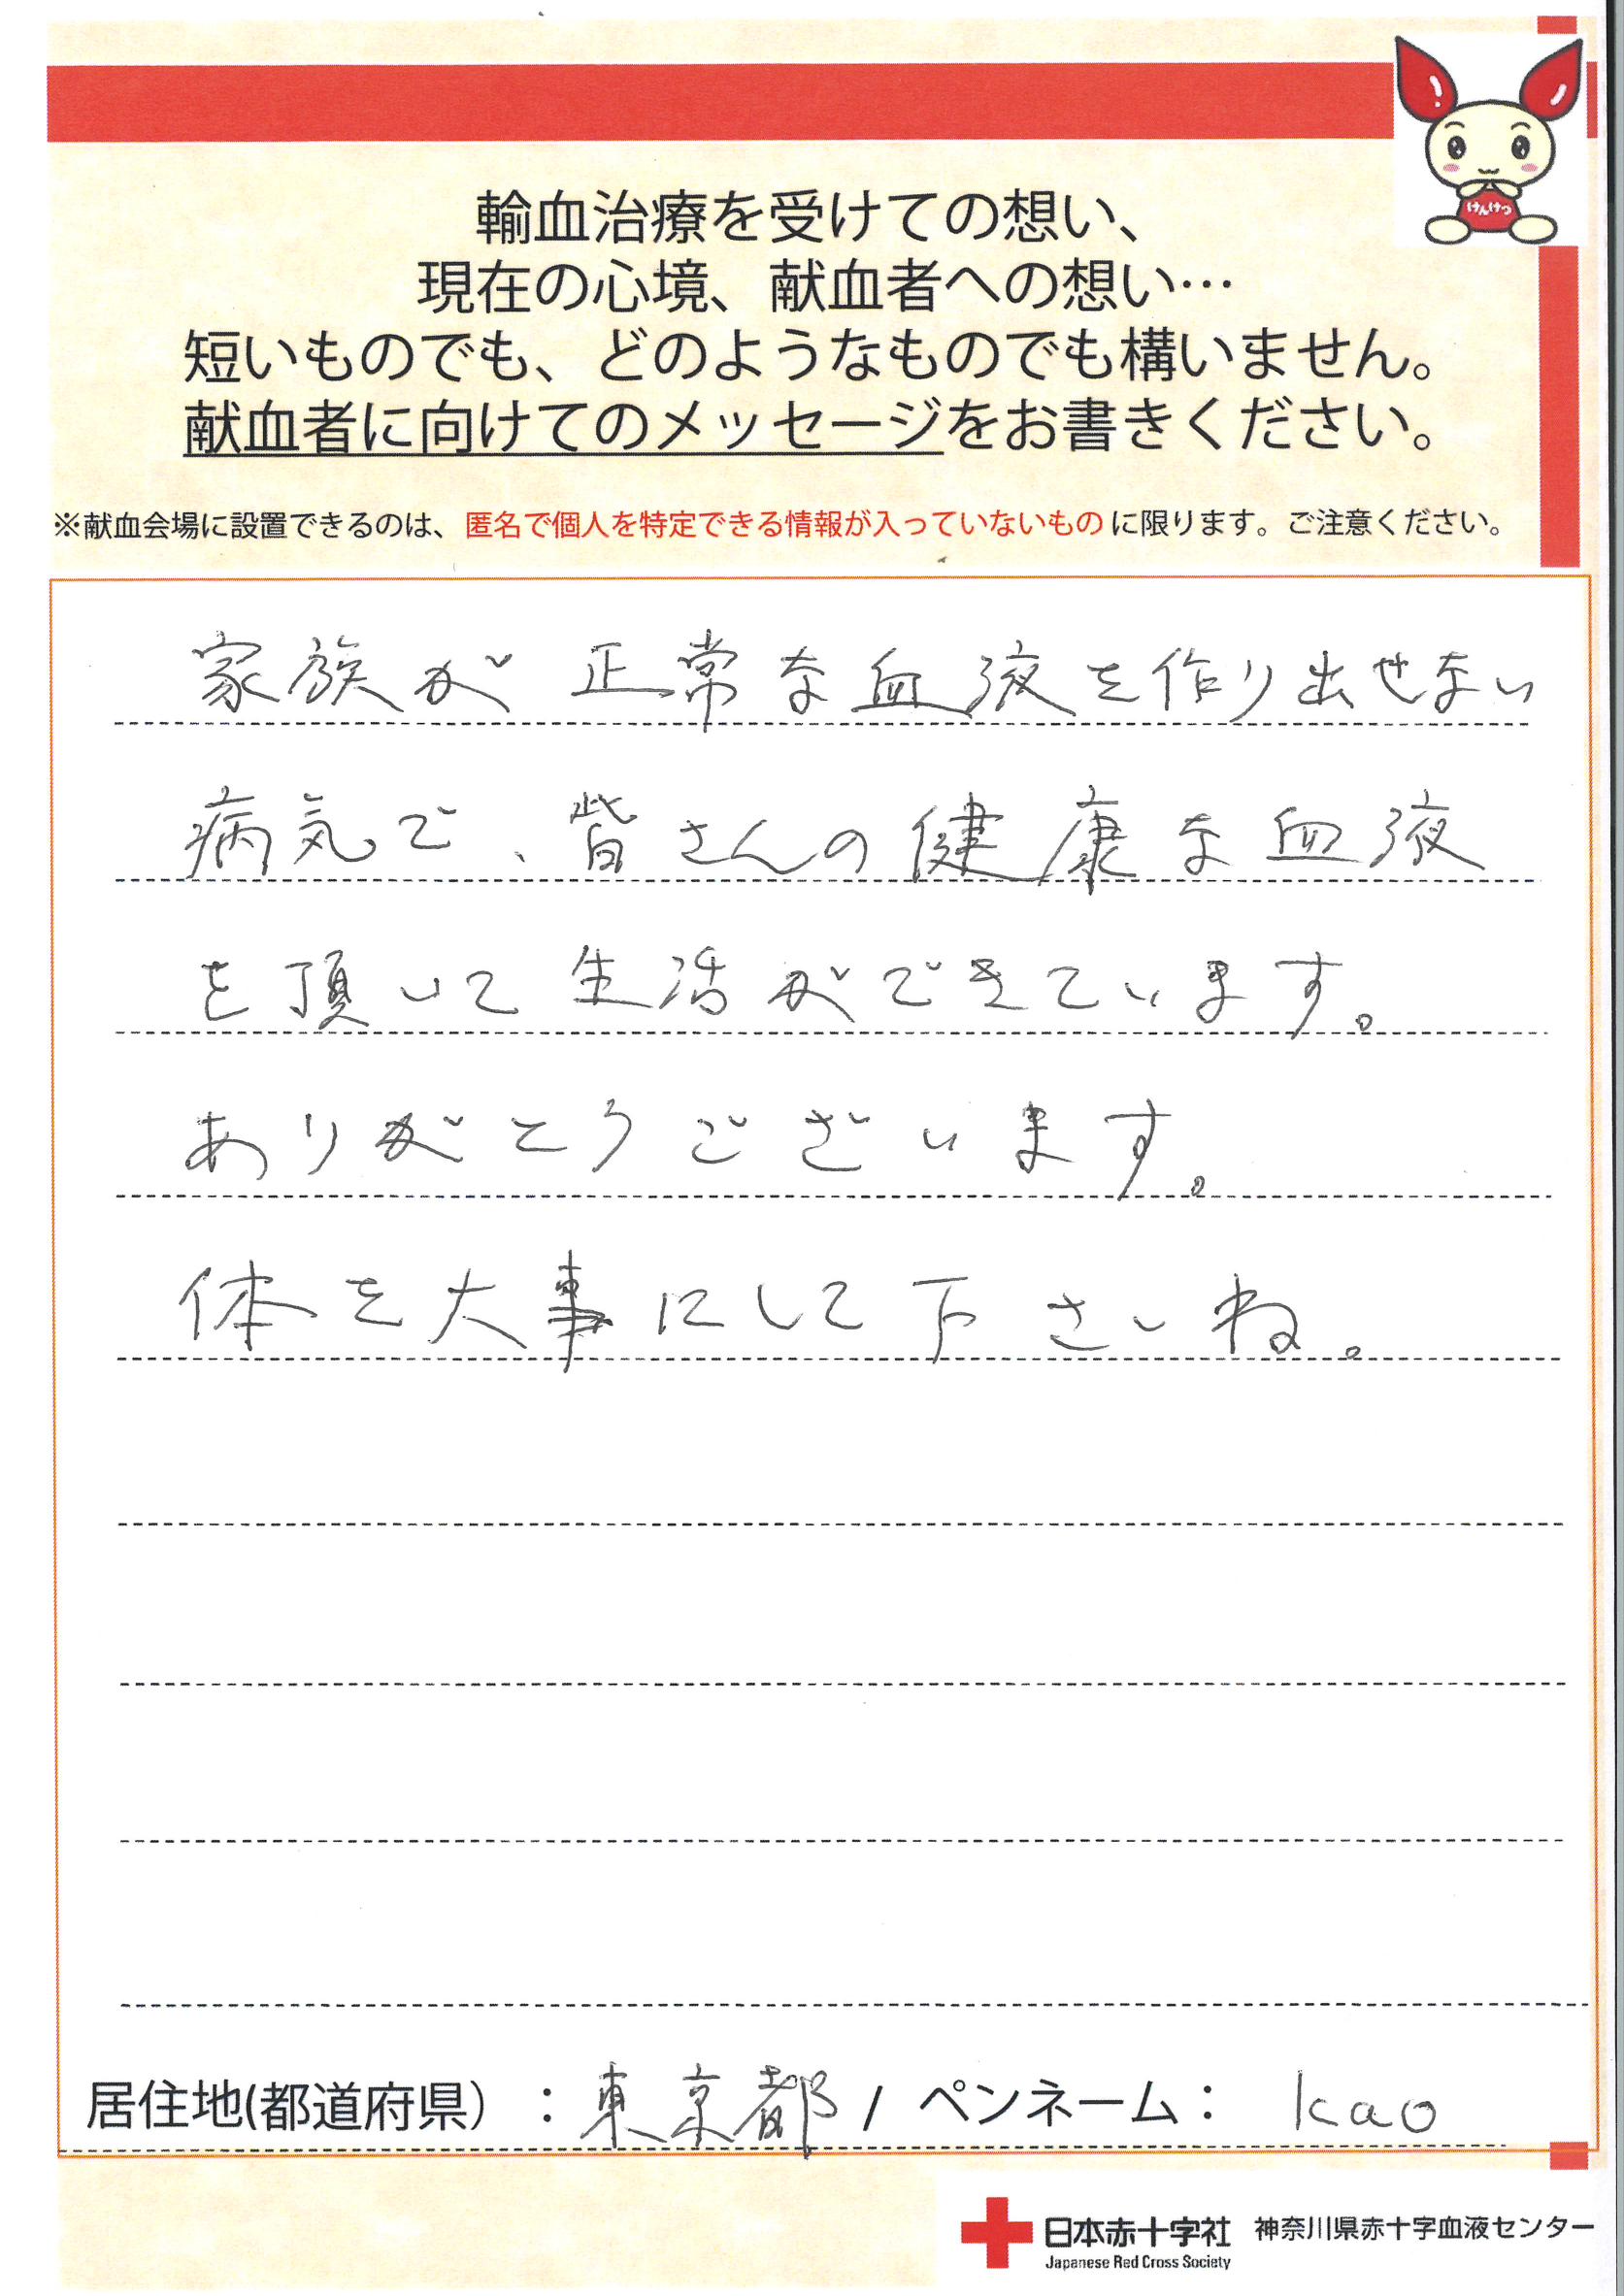 けんけつ
輸血治療を受けての想い、
現在の心境、献血者への想い…
短いものでも、どのようなものでも構いません。
献血者に向けてのメッセージをお書きください。
※献血会場に設置できるのは、匿名で個人を特定できる情報が入っていないものに限ります。ご注意ください。
家族が正常な血液を作り出せない
病気で、皆さんの健康な血液
を頂いて生活ができています。
ありがとうございます。
体を大事にして下さいね。
居住地(都道府県)：東京都/ペンネーム：kao
日本赤十字社 神奈川県赤十字血液センター
Japanese Red Cross Society